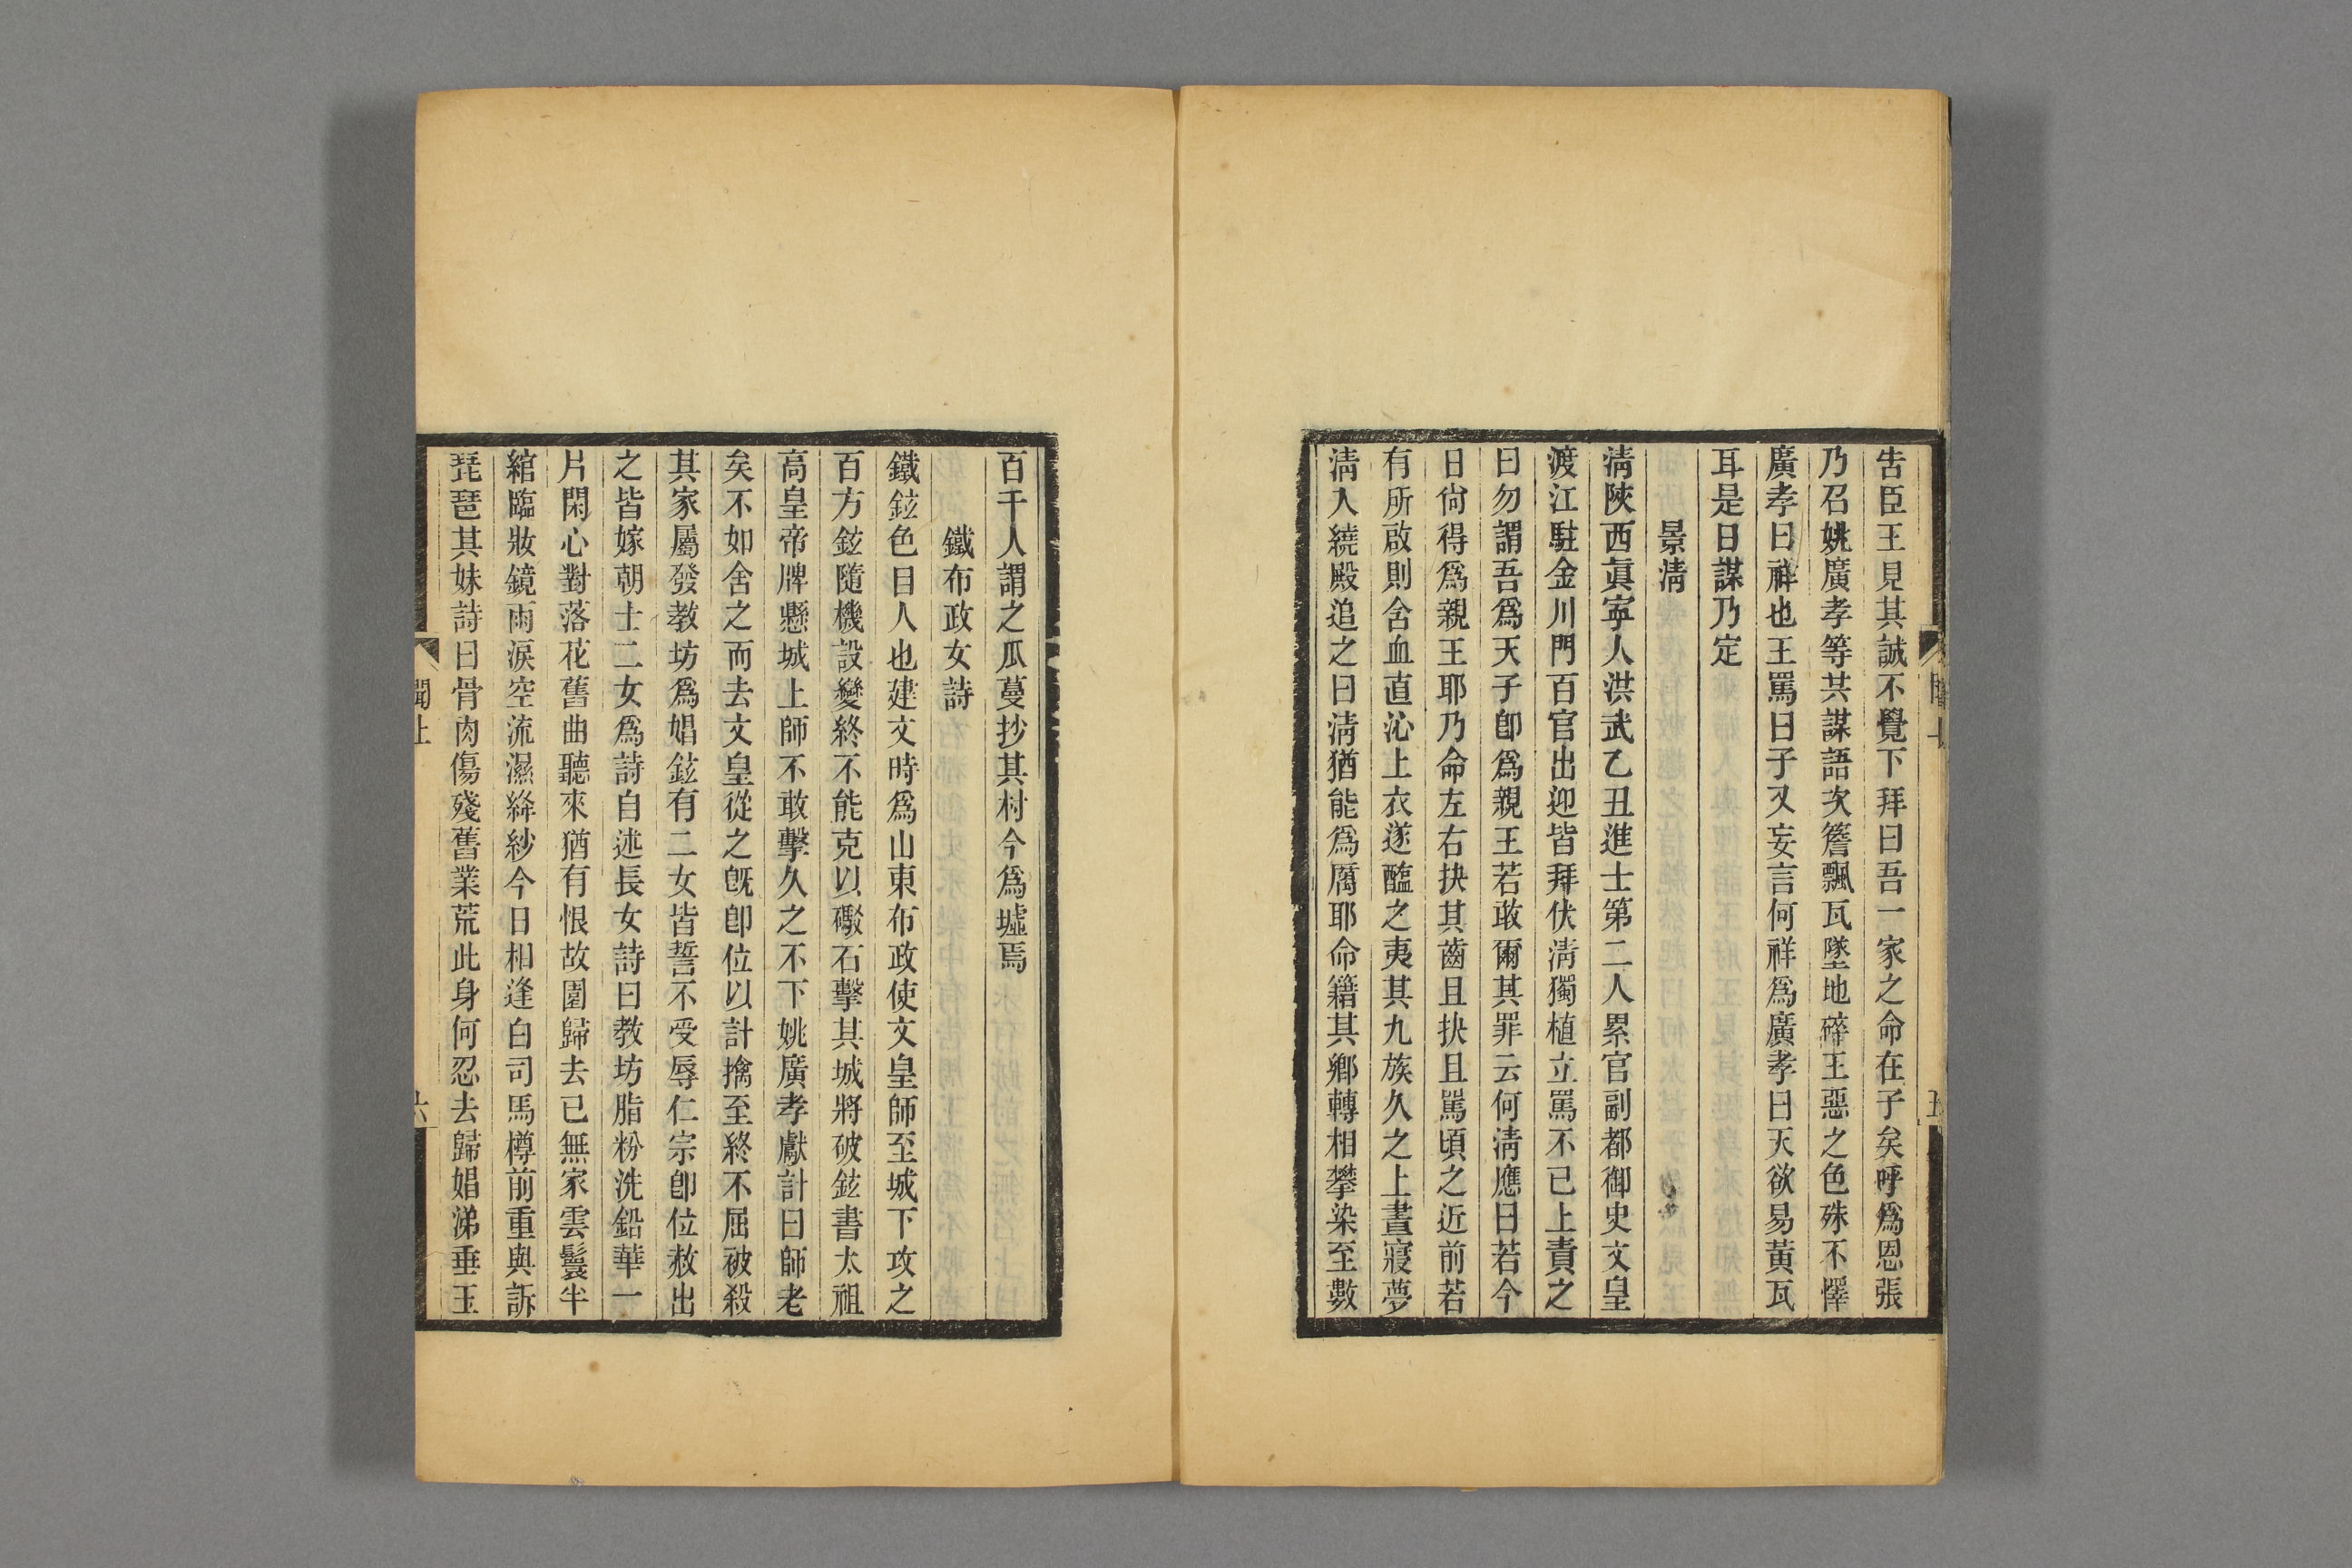 告臣王見其誠不覺下拜曰吾一家之命在子矣呼爲恩張
乃召姚廣孝等共謀語次簷飄瓦墜地碎王惡之色殊不懌
廣孝曰祥也王罵曰子又妄言何祥爲廣孝曰天欲易黃瓦
耳是日謀乃定
景淸
淸陝西眞寜人洪武乙丑進士第二人累官副都御史文皇
渡江駐金川門百官出迎皆拜伏淸獨植立罵不已上責之
曰勿謂吾爲天子卽爲親王若敢爾其罪云何淸應曰若今
日尙得爲親王耶乃命左右抉其齒且抉且罵頃之近前若
有所啟則含血直沁上衣遂醢之夷其九族久之上晝寢夢
淸入繞殿追之曰淸猶能爲厲耶命籍其鄉轉相攀染至數
百千人謂之瓜蔓抄其村今爲墟焉
鐵布政女詩
鐵鉉色目人也建文時爲山東布政使文皇師至城下攻之
百方鉉隨機設變終不能克以礮石擊其城將破鉉書太祖
高皇帝牌懸城上師不敢擊久之不下姚廣孝獻計曰師老
矣不如舍之而去文皇從之旣卽位以計擒至終不屈被殺
其家屬發教坊爲娼鉉有二女皆誓不受辱仁宗卽位赦出
之皆嫁朝士二女爲詩自述長女詩曰教坊脂粉洗鉛華一
片閑心對落花舊曲聽來猶有恨故園歸去已無家雲鬟半
綰臨妝鏡雨淚空流濕絳紗今日相逢白司馬樽前重與訴
琵琶其妹詩曰骨肉傷殘舊業荒此身何忍去歸娼涕垂玉
聞上
六